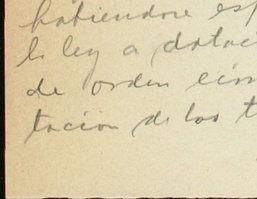 habiendose es
la ley a dotaci
de orden eco
tacion de las t